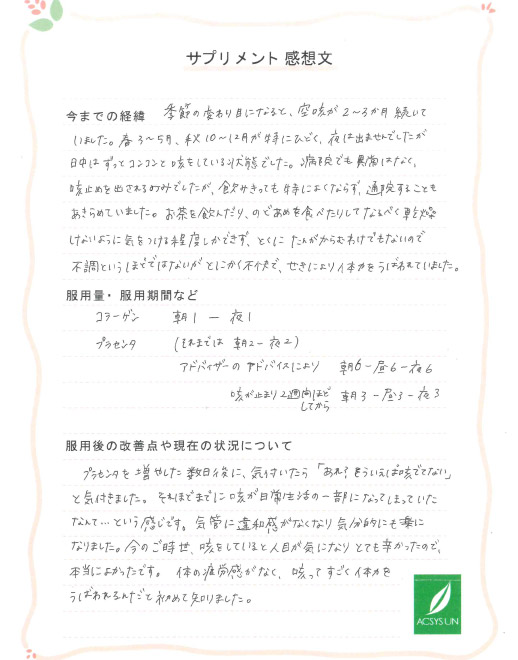 サプリメント 感想文
今までの経緯 季節の変わり目になると、空咳が2~3か月続いて
いました。春3~5月、秋10~12月が特にひどく、夜は出ませんでしたが
日中はずっとコンコンと咳をしている状態でした。病院でも異常はなく、
咳止めを出されるのみでしたが、飲みきっても特によくならず、通院することも
あきらめていました。お茶を飲んだり、のどあめを食べたりしてなるべく乾燥
しないように気をつける程度しかできず、とくにたんがからむわけでもないので
不調というほどではないがとにかく不快で、せきにより体力をうばわれていました。
服用量・服用期間など
コラーゲン 朝1 ー 夜1
プラセンタ (それまでは 朝2-夜2)
アドバイザーのアドバイスにより 朝6-昼6-夜6
咳が止まり2週間ほど
してから 朝3-昼3-夜3
服用後の改善点や現在の状況について
プラセンタを増やした数日後に、気付いたら「あれ?そういえば咳でてない」
と気付きました。それほどまでに咳が日常生活の一部になってしまっていた
なんて…という感じです。気管に違和感がなくなり気分的にも楽に
なりました。今のご時世、咳をしていると人目が気になりとても辛かったので、
本当によかったです。体の疲労感がなく、咳ってすごく体力を
うばわれるんだと初めて知りました。
ACSYSUN